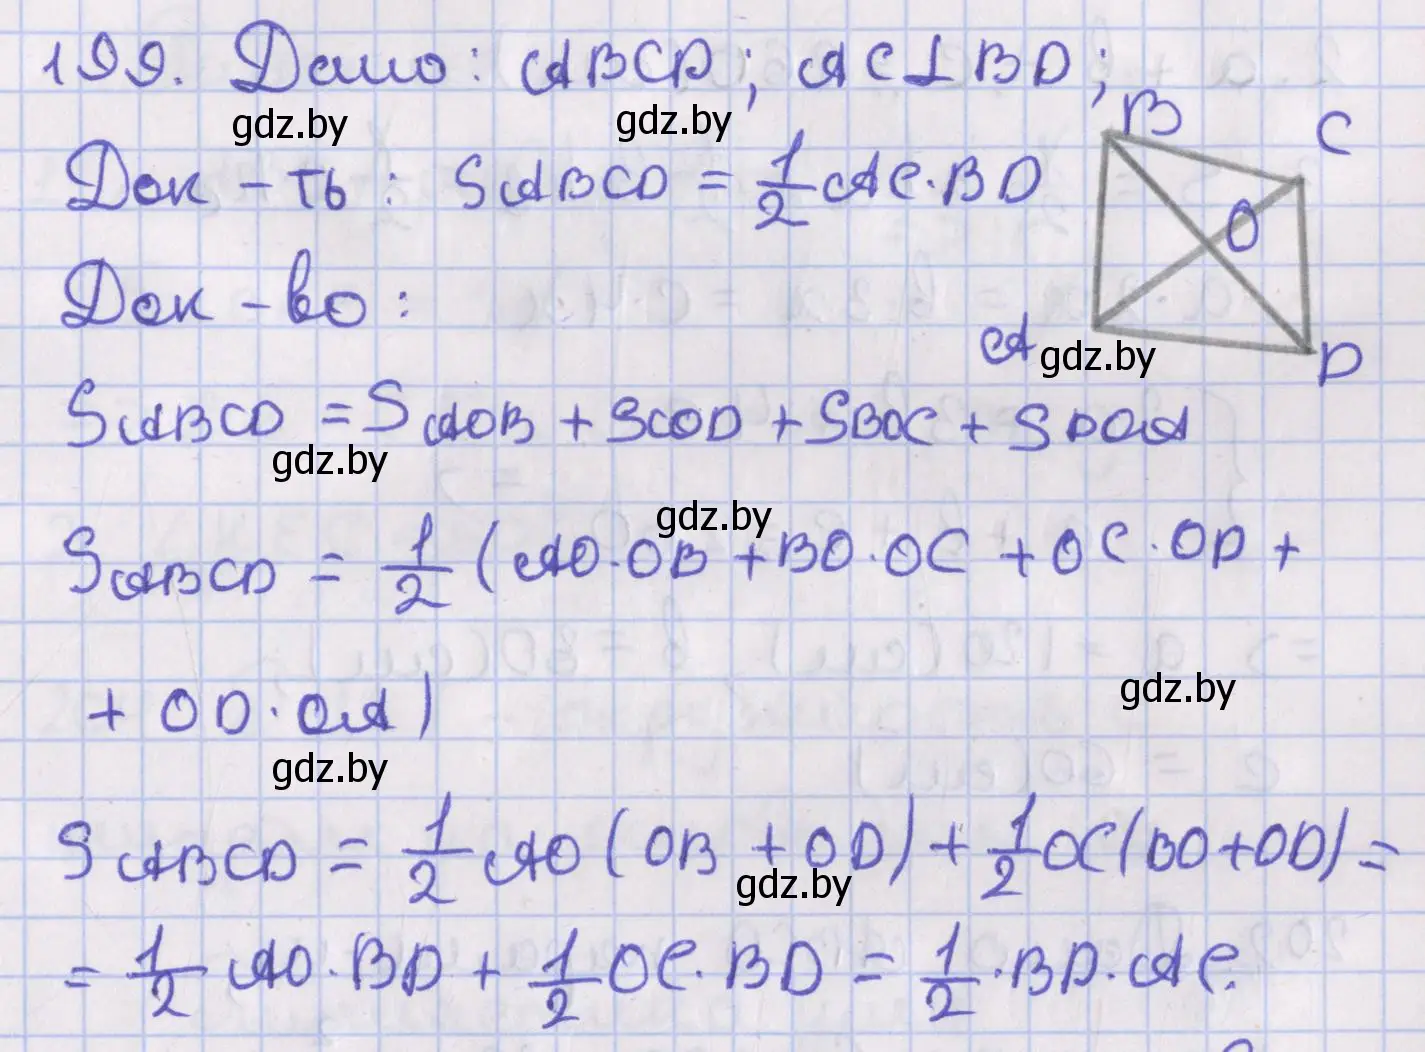 199. Дано: ABCD; AC⊥BD;
gdz.by gdz.by
B C
Док-ть: SABCD = 1/2 AC·BD
O
Док-во:
A gdz.by D
SABCD = SAOB + SCOD + SBOC + SDOA
gdz.by
gdz.by
SABCD = 1/2 (AO·OB + BO·OC + OC·OD +
+ OD·OA)
gdz.by
gdz.by
SABCD = 1/2 AO(OB + OD) + 1/2 OC(BO+OD) =
gdz.by
= 1/2 AO·BD + 1/2 OC·BD = 1/2 ·BD·AC.